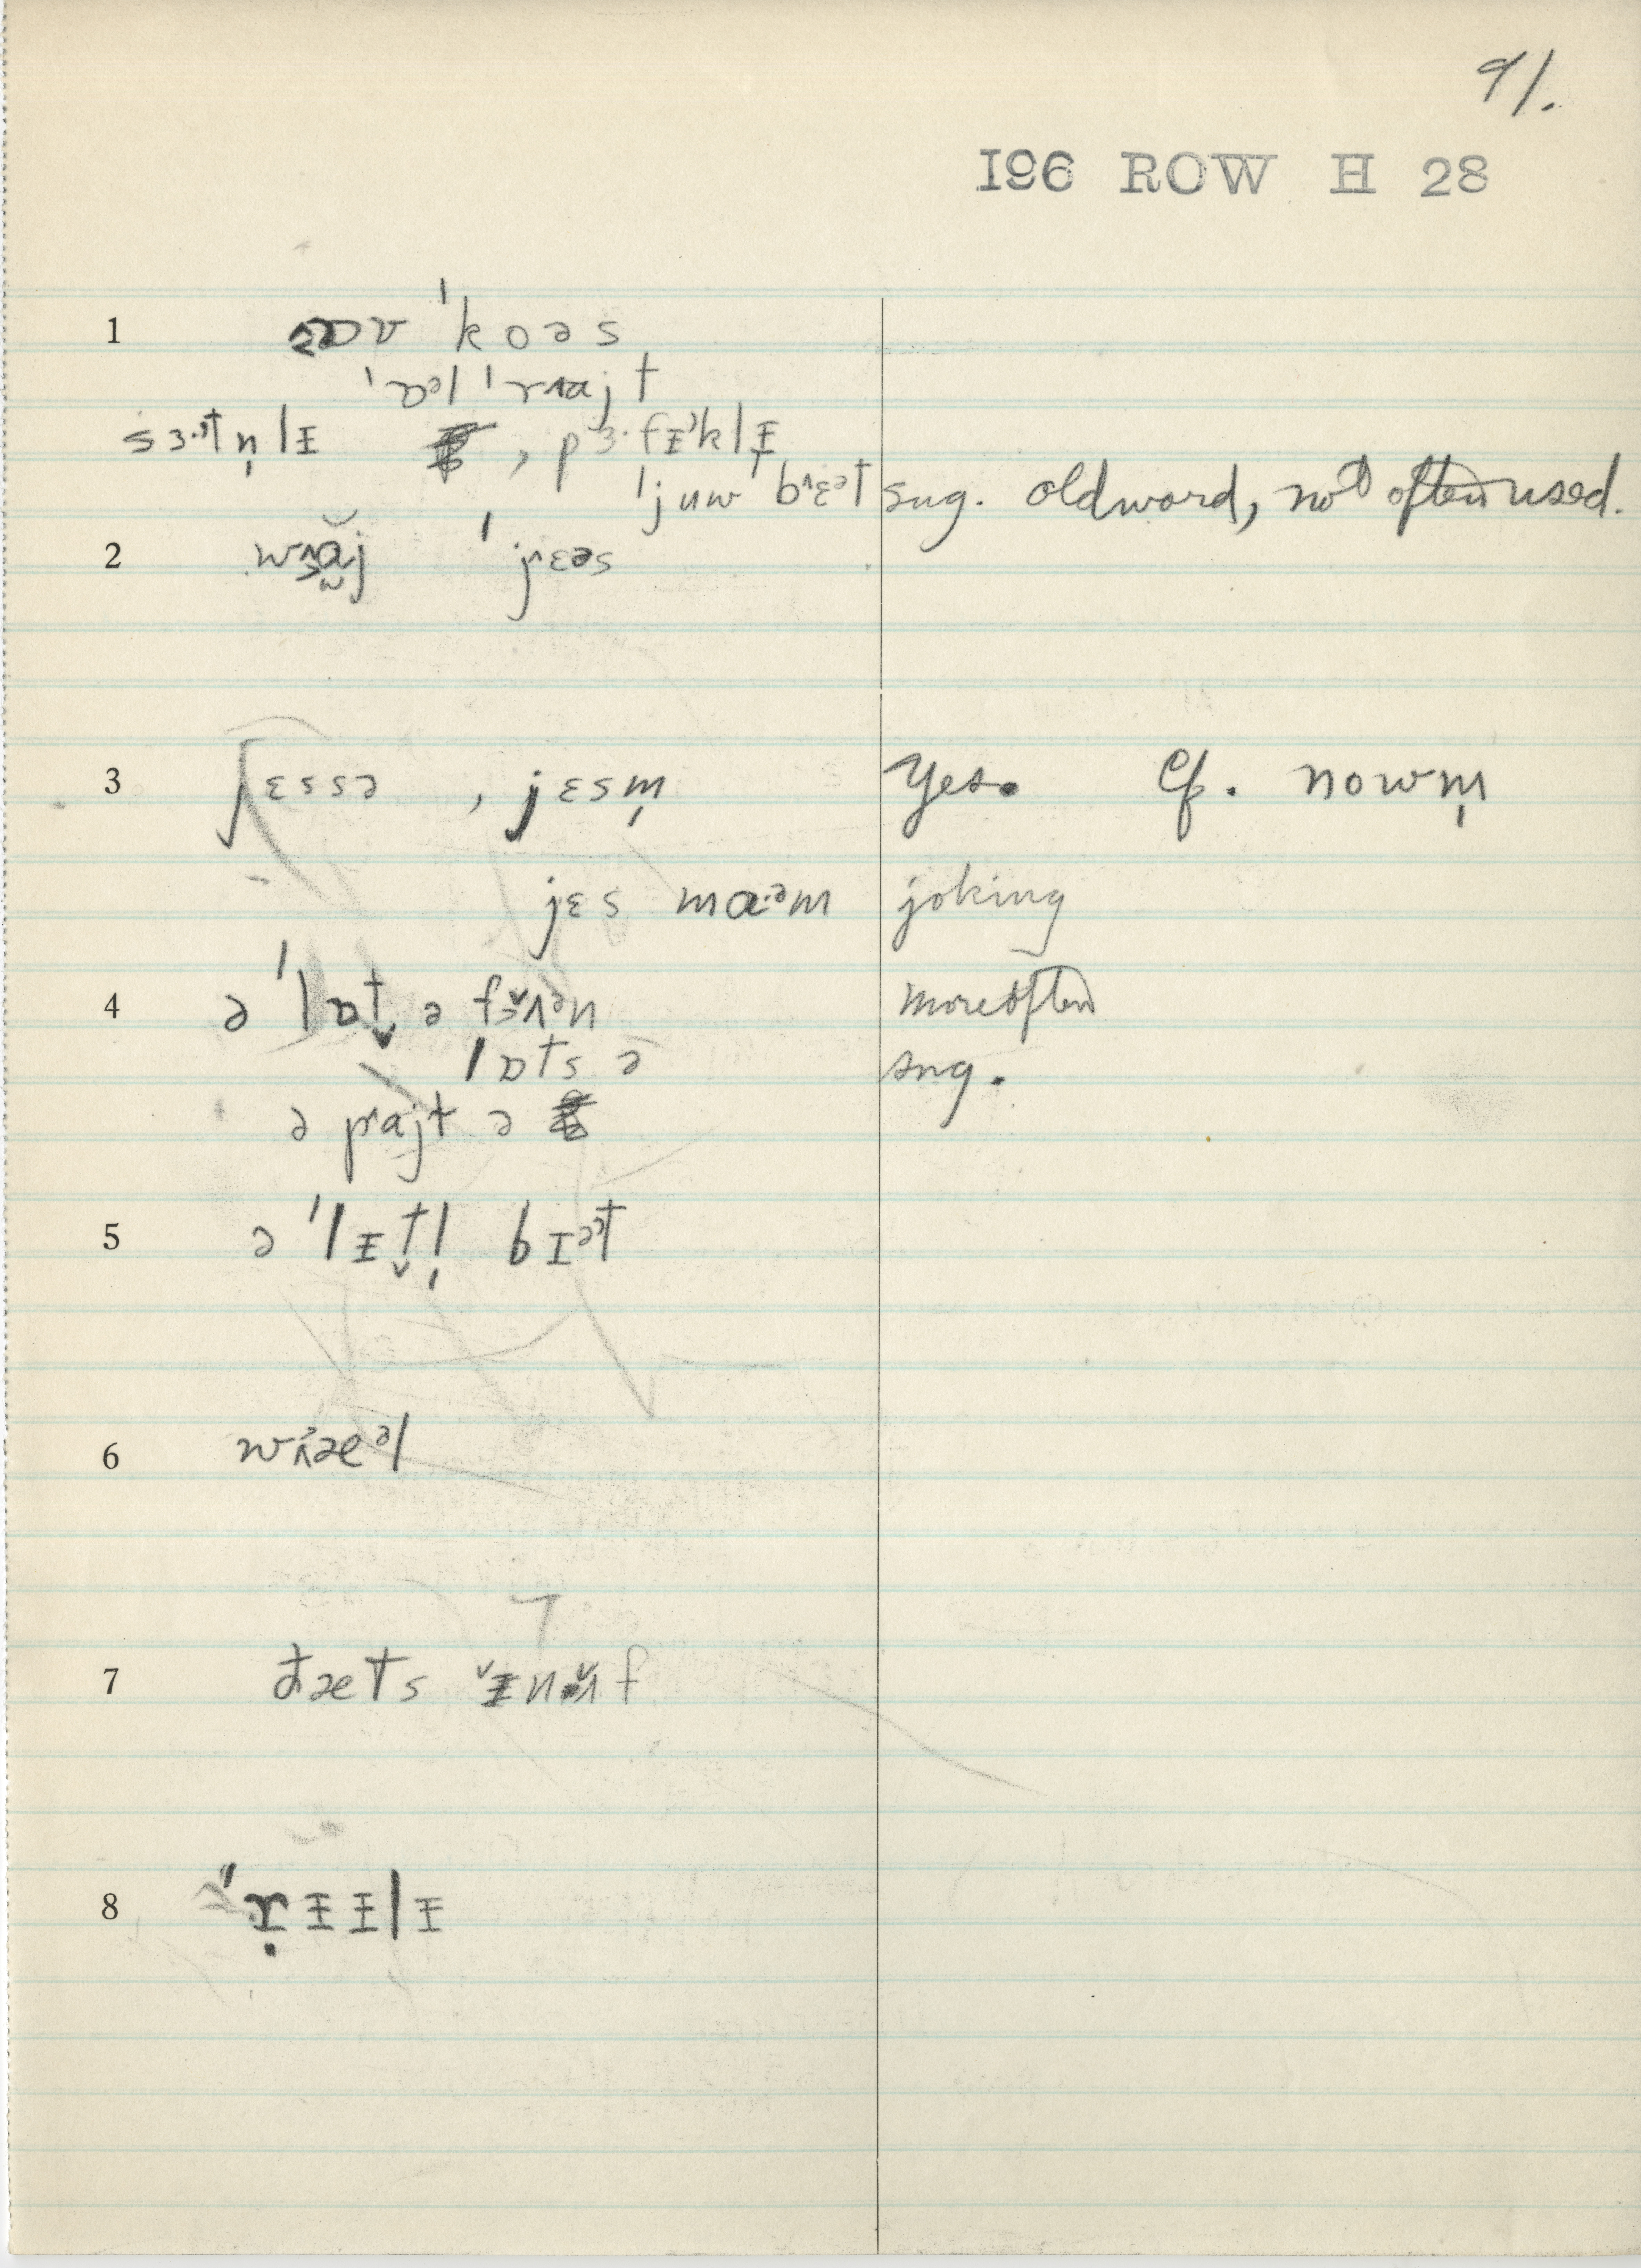 91.
I96 ROW H 28
1 əv ˈkoəs
ˈɒəl ˈraɪjt
sɜ·tn̩lɪ , pɜ·fɪklɪ
ˈjuw ˈbɛət sug. old word, not often used.
2 waj ˈjɛəs
3 jɛssə , jɛsm̩ Yes. Cf. nowm̩
jɛs ma·əm joking
4 ə ˈlɒt̬ ə fʌən more often
lɒts ə sug.
ə prajt ə
5 ə ˈlɪt̬l̩ bɪət
6 wæəl
7 ðæts ɪnʌf
8 ˈrɪɪlɪ